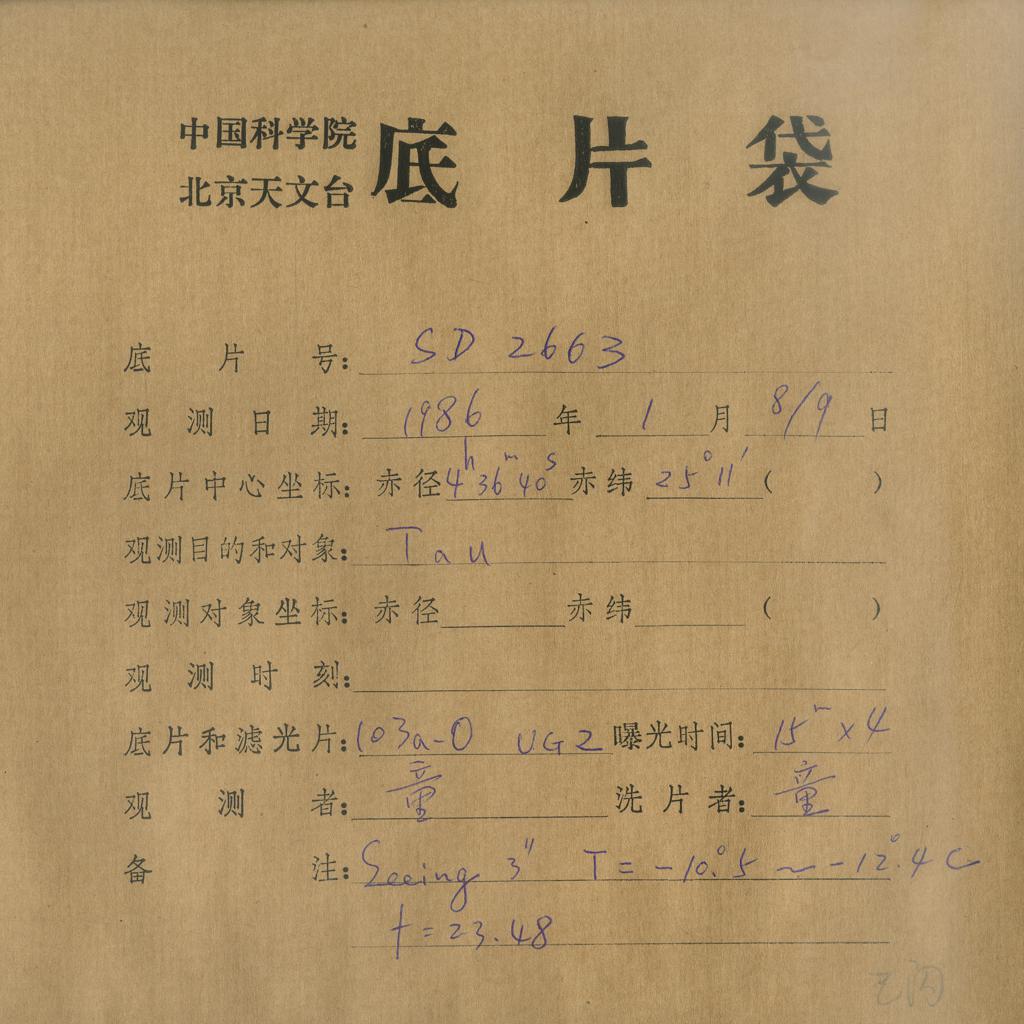 中国科学院
北京天文台
底片袋
底片号: SD 2663
观测日期: 1986年 1月 8/9日
底片中心坐标: 赤径 4h36m40s 赤纬 25°11′ ( )
观测目的和对象: Tau
观测对象坐标: 赤径 赤纬 ( )
观测时刻:
底片和滤光片: 103a-O UG2 曝光时间: 15m×4
观测者: 童 洗片者: 童
备注: Seeing 3″ T=-10°.5 ~ -12°.4 C
t=23.48